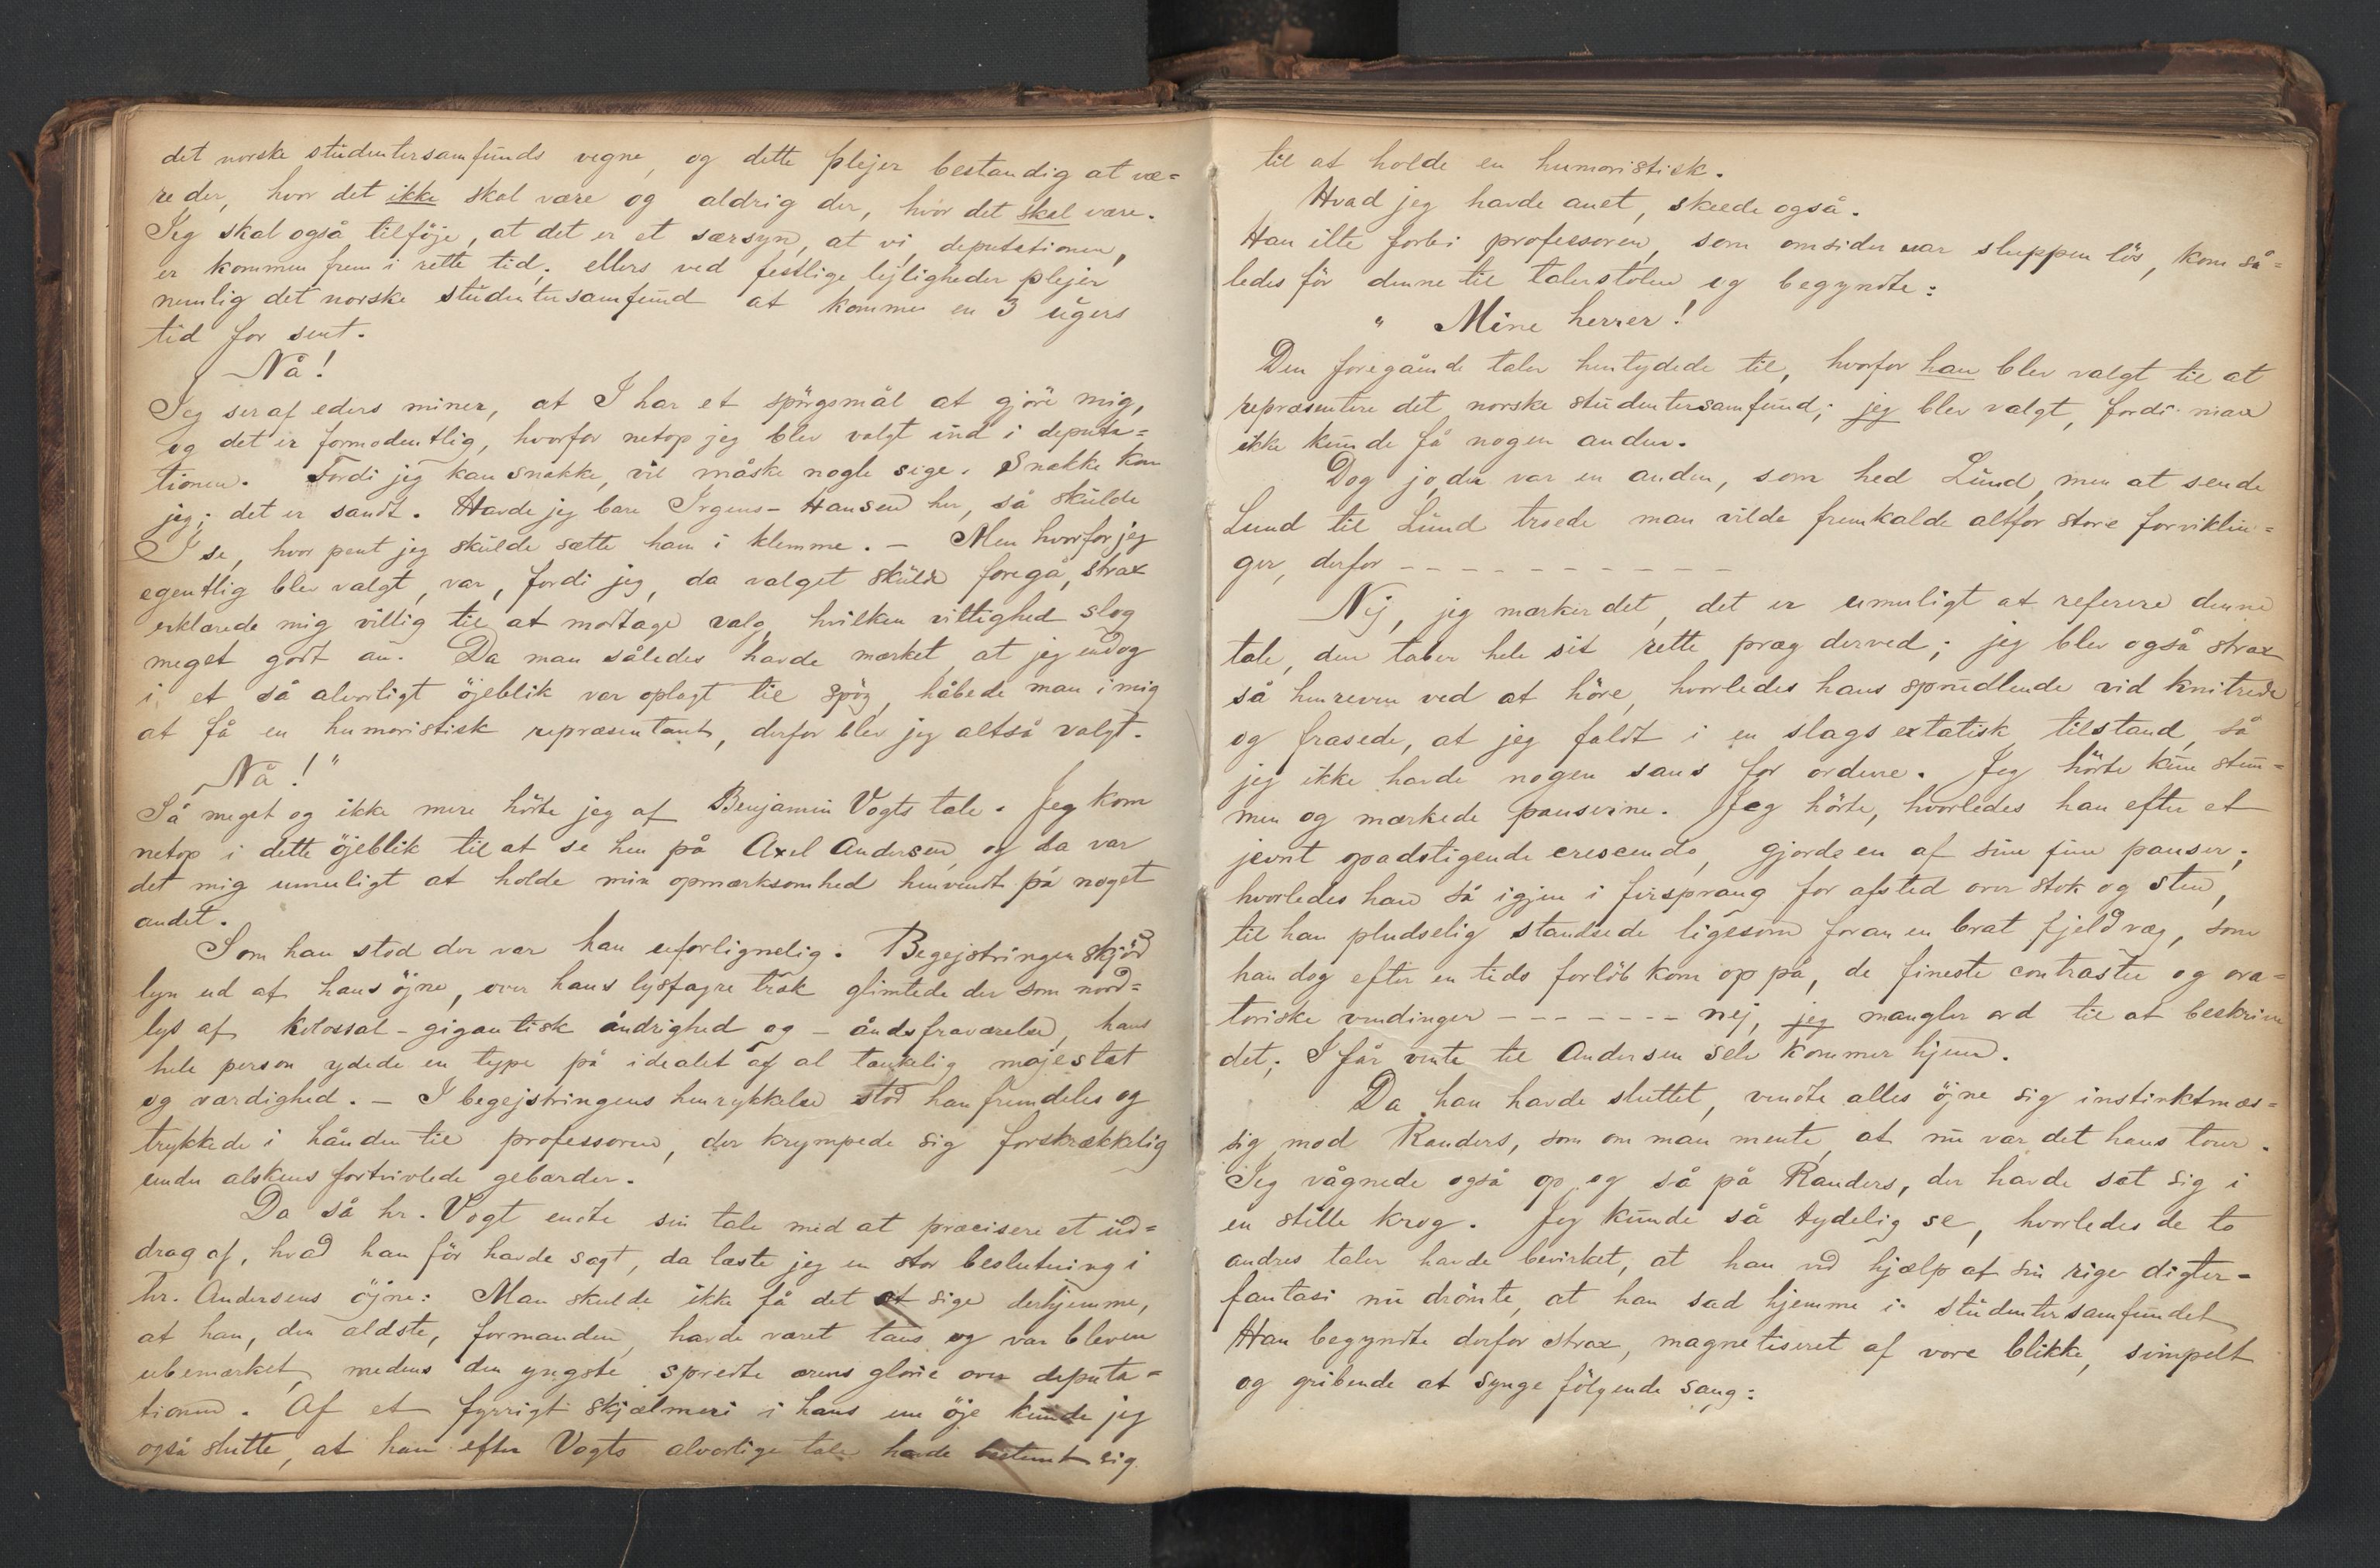 det norske studentersamfunds vegne, og dette plejer bestandig at væ=
re der, hvor det ikke skal være og aldrig der, hvor det skal være.
Jeg skal også tilföje, at det er et særsyn, at vi, deputationen,
er kommen frem i rette tid; ellers ved festlige lejligheder plejer
nemlig det norske studentersamfund at komme en 3 ugers
tid for sent.
Nå!
Jeg ser af eders miner, at I har et spörgsmål at gjöre mig,
og det er formodentlig, hvorfor netop jeg blev valgt ind i deputa=
tionen. Fordi jeg kan snakke, vil måske nogle sige. Snakke kan
jeg; det er sandt. Havde jeg bare Irgens-Hansen her, så skulde
I se, hvor pent jeg skulde sætte ham i klemme. – Men hvorfor jeg
egentlig blev valgt, var, fordi jeg, da valget skulde foregå, strax
erklærede mig villig til at modtage valg, hvilken vittighed slog
meget godt an. Da man således havde mærket, at jeg endog
i et så alvorligt öjeblik var oplagt til spög, håbede man i mig
at få en humoristisk repræsentant, derfor blev jeg altså valgt.
Nå!"
Så meget og ikke mere hörte jeg af Benjamin Vogts tale. Jeg kom
netop i dette öjeblik til at se hen på Axel Andersen, og da var
det mig umuligt at holde min opmærksomhed henvendt på noget
andet.
Som han stod der var han uforlignelig. Begejstringen skjöd
lyn ud af hans öjne, over hans lysfagre træk glimtede der som nord=
lys af kolossal-gigantisk åndrighed og – åndsfraværelse, hans
hele person ydede en type på idealet af al tænkelig majestæt
og værdighed. – I begejstringens henrykkelse stod han fremdeles og
trykkede i hånden til professoren, der krympede sig forskrækkelig
under alskens fortvivlede gebærder.
Da så hr. Vogt endte sin tale med at præcisere et ud=
drag af, hvad han för havde sagt, da læste jeg en stor beslutning i
hr. Andersens öjne: Man skulde ikke få det at sige derhjemme,
at han, den ældste, formanden, havde været taus og var bleven
ubemærket, medens den yngste spredte ærens glorie over deputa=
tionen. Af et fyrrigt skjælmeri i hans ene öje kunde jeg
også slutte, at han efter Vogts alvorlige tale havde bestemt sig
til at holde en humoristisk.
Hvad jeg havde anet, skeede også.
Han ilte forbi professoren, som omsider var sluppen lös, kom så=
ledes för denne til talerstolen og begyndte:
" Mine herrer!
Den foregående taler hentydede til, hvorfor han blev valgt til at
repræsentere det norske studentersamfund; jeg blev valgt, fordi man
ikke kunde få nogen anden.
Dog jo, der var en anden, som hed Lund, men at sende
Lund til Lund troede man vilde fremkalde altfor store forviklin=
ger, derfor – – – – – – – – – –
Nej, jeg mærker det, det er umuligt at referere denne
tale, den taber hele sit rette præg derved; jeg blev også strax
så henreven ved at höre, hvorledes hans sprudlende vid knitrede
og frasede, at jeg faldt i en slags extatisk tilstand, så
jeg ikke havde nogen sans for ordene. Jeg hörte kun stem=
men og mærkede pauserne. Jeg hörte, hvorledes han efter et
jevnt opadstigende crescendo, gjorde en af sine fine pauser;
hvorledes han så igjen i firsprang for afsted over stok og sten,
til han pludselig standsede ligesom foran en brat fjeldvæg, som
han dog efter en tids forlöb kom op på, de fineste contraster og ora=
toriske vendinger – – – – – – – nej, jeg mangler ord til at beskrive
det; I får vente til Andersen selv kommer hjem.
Da han havde sluttet, vendte alles öjne sig instinktmæs=
sig mod Randers, som om man mente, at nu var det hans tour.
Jeg vågnede også op og så på Randers, der havde sat sig i
en stille krog. Jeg kunde så tydelig se, hvorledes de to
andres taler havde bevirket, at han ved hjælp af sin rige digter=
fantasi nu drömte, at han sad hjemme i studentersamfundet
Han begyndte derfor strax, magnetiseret af vore blikke, simpelt
og gribende at synge fölgende sang: